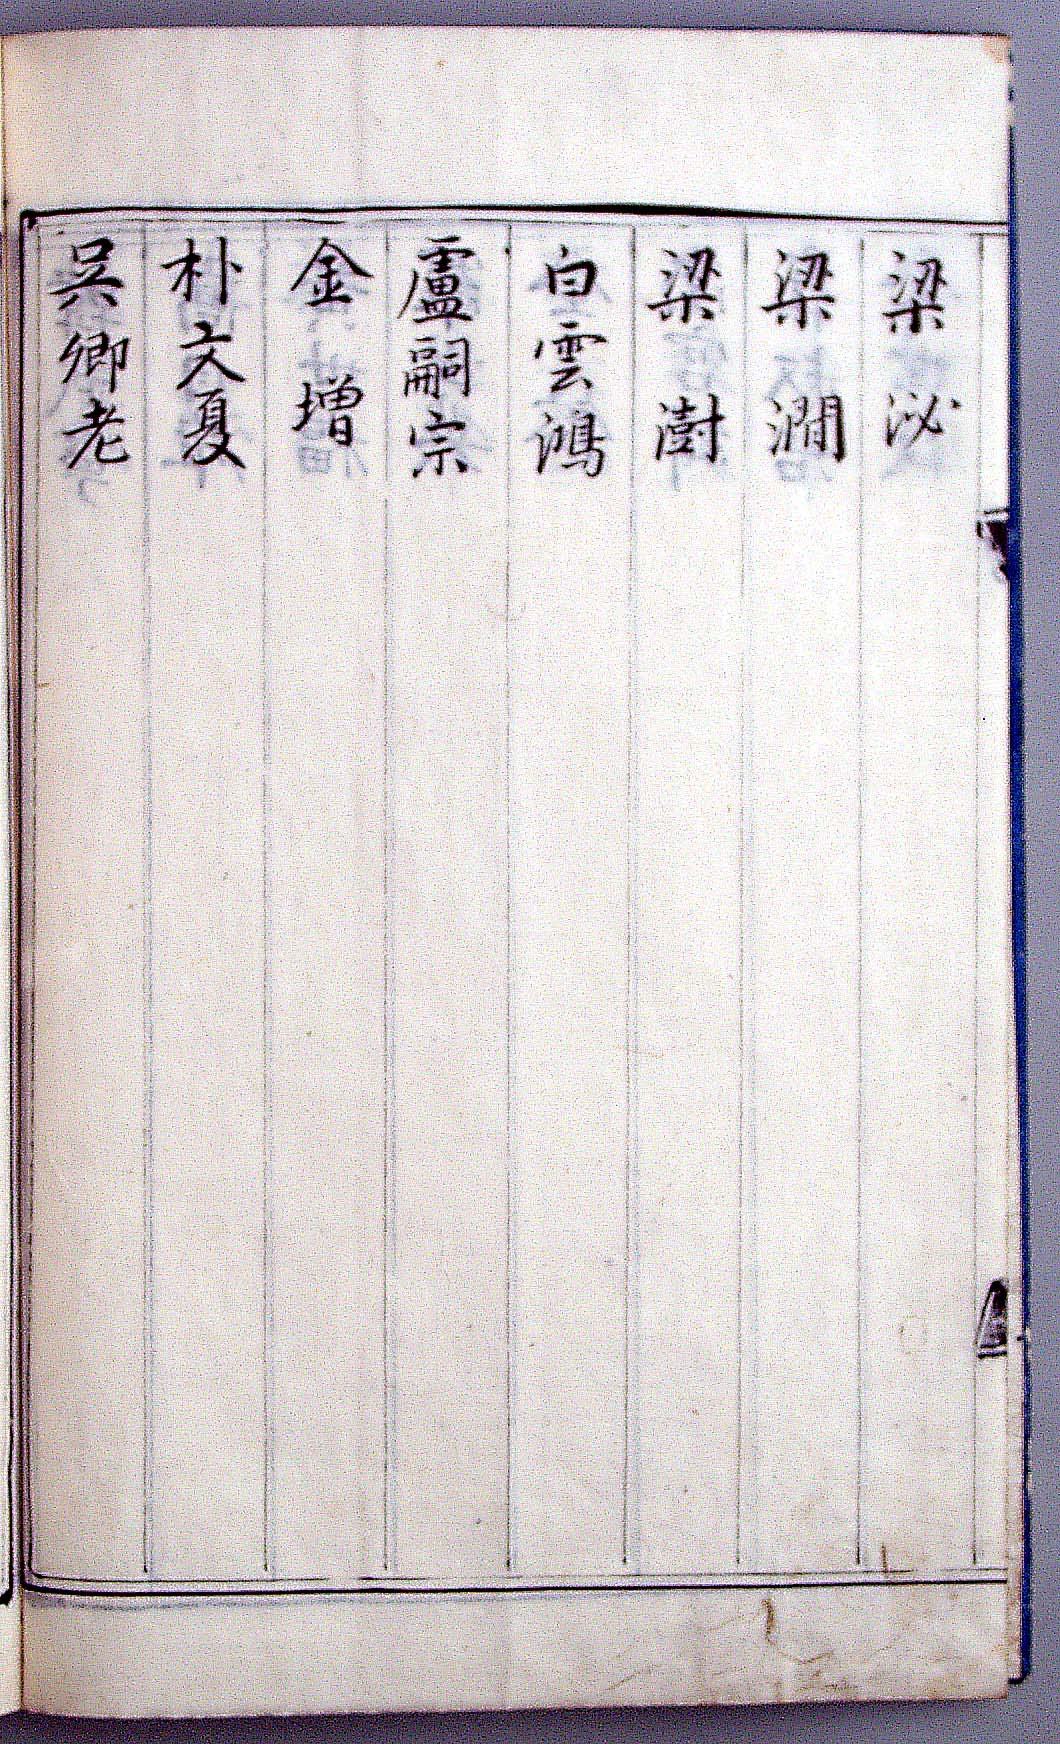 梁泌
梁澗
梁澍
白雲鴻
盧嗣宗
金增
朴文夏
吳卿老